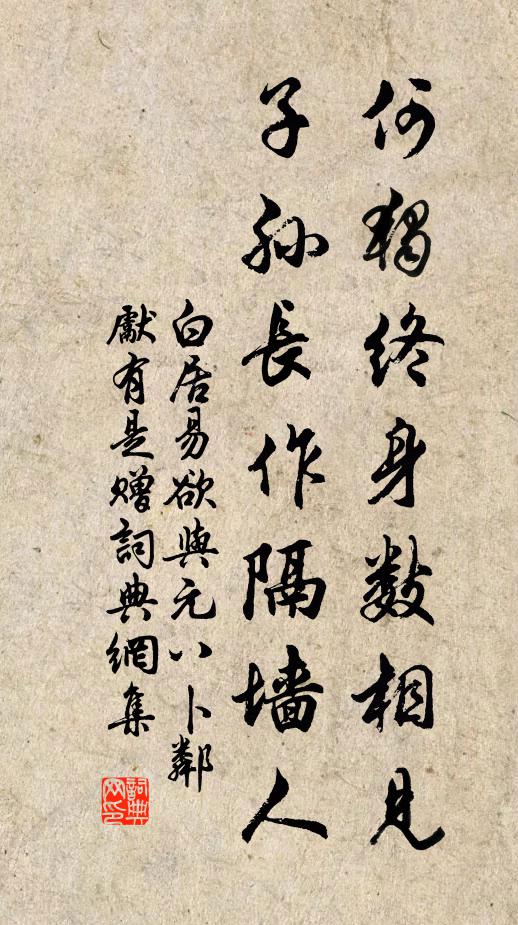 何獨终身數相見
子孫長作隔墙人
白居易欲與元八卜鄰
獻有是贈詞典網集
詞典
网印